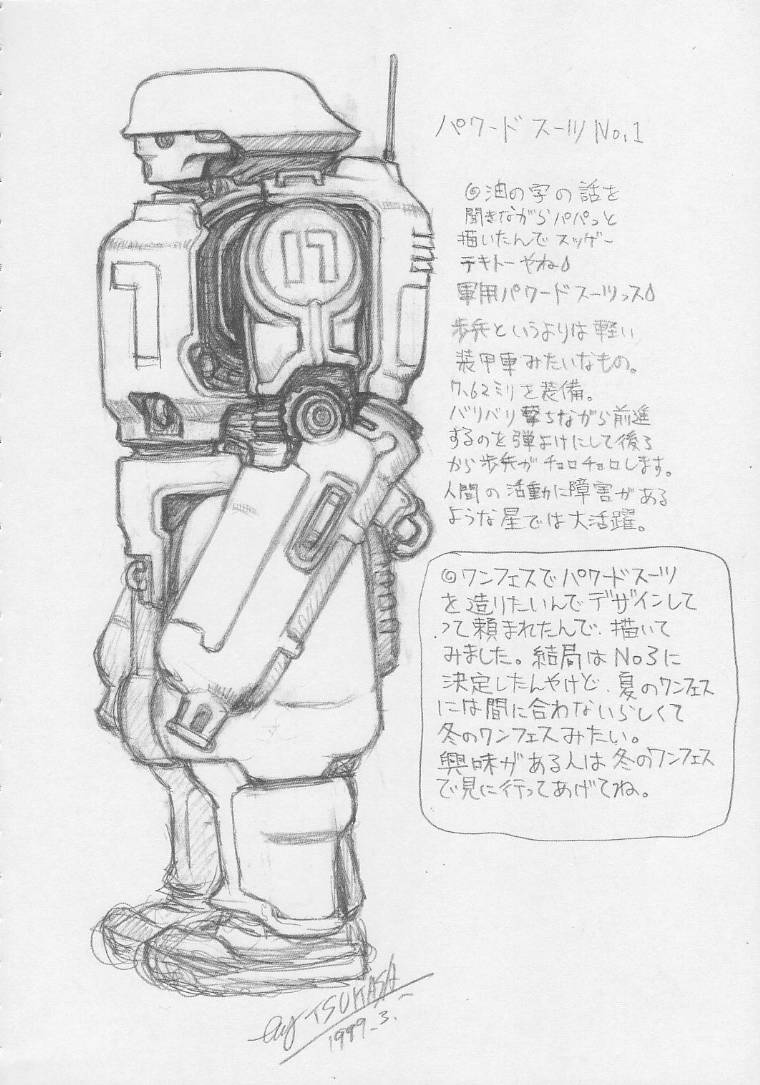 パワード スーツ No.1
◎油の字の話を
聞きながらパパっと
描いたんで スッゲー
テキトーやね
軍用パワードスーツっス
歩兵というよりは軽い
装甲車みたいなもの。
7.62ミリを装備。
バリバリ撃ちながら前進
するのを弾よけにして後ろ
から歩兵がチョロチョロします。
人間の活動に障害がある
ような星では大活躍。
◎ワンフェスでパワードスーツ
を造りたいんでデザインして
って頼まれたんで、描いて
みました。結局はNo3に
決定したんやけど、夏のワンフェス
には間に合わないらしくて
冬のワンフェスみたい。
興味がある人は冬のワンフェス
で見に行ってあげてね。
17
by TSUKASA
1999.3.